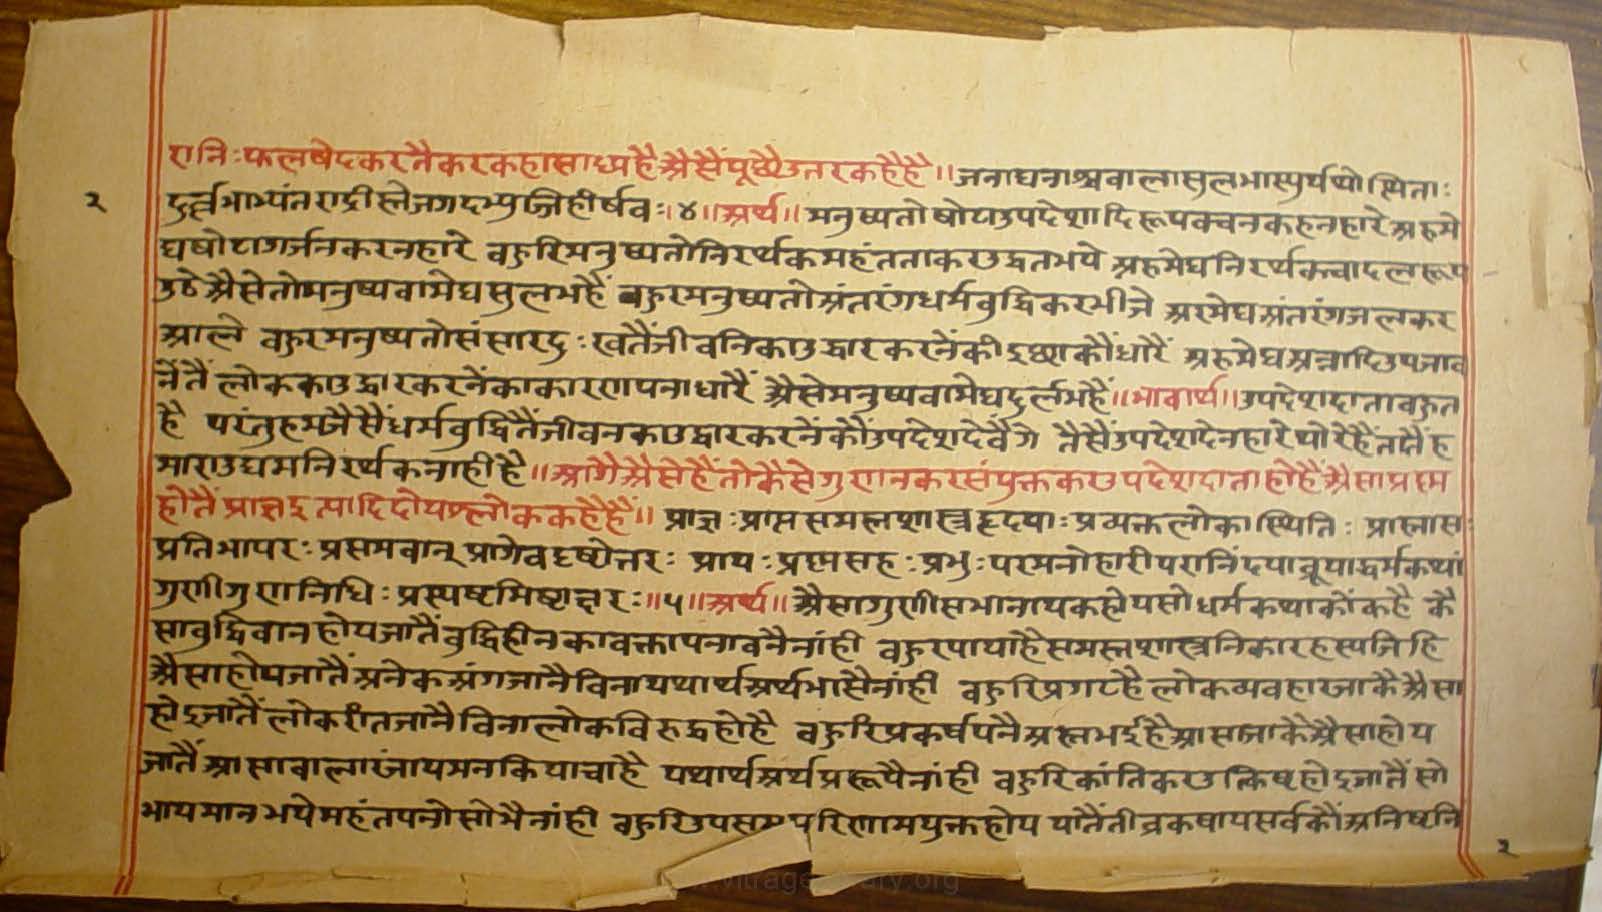 एनिःफलषेदकरनैकरकहासाध्यहै अैसैंपूछैउत्तरकहैहै॥ जनाघनाश्चवालासुलभास्युर्यथोत्थिताः
२
दुर्लभाभ्यंतराद्रीस्तेजगदभ्युज्जिहीर्षवः॥४॥अर्थ॥ मनुष्यतोषोटाउपदेशादिरूपवचनकहनहारे अरुमे
घषोटागर्जनकरनहारे वहुरिमनुष्यतोनिरर्थकमहंतताकरउद्धतभये अरुमेघनिरर्थकवादलरूप
उठे अैसेतोमनुष्यवामेघसुलभहैं वहुरमनुष्यतोअंतरंगधर्मवुद्धिकरभीजे अरमेघअंतरंगजलकर
आले वहुरमनुष्यतोसंसारदुःखतैंजीवनिकाउद्धारकरनेंकीइछाकौंधारैं अरुमेघअन्नादिउपजाव
नेंतैं लोककाउद्धारकरनेंकाकारणपनाधारैं अैसेमनुष्यवामेघदुर्लभहैं॥भावार्थ॥उपदेशदातावहुत
है परंतुहमजैसैंधर्मवुद्धितैंजीवनकाउद्धारकरनेंकौंउपदेशदेवैंगे तैसैंउपदेशदेनहारेथोरेहैंतातैंह
माराउद्यमनिरर्थकनाहीहै॥आगैअैसेहैंतोकैसेगुणनकरसंयुक्तकरउपदेशदाताहोहैंअैसाप्रश्न
होतैंप्राज्ञइत्यादिदोयश्लोककहैहैं॥ प्राज्ञःप्राप्तसमस्तशास्त्रहृदयाःप्रव्यक्तलोकास्थितिः प्रास्तासः
प्रतिभापरःप्रसमवान्प्रागेवदृष्टोत्तरः प्रायःप्रश्नसहःप्रभुःपरमनोहारीपरानिंदयाब्रूयाद्धर्मकथां
गुणीगुणनिधिःप्रस्पष्टमिष्टाक्षरः॥५॥अर्थ॥अैसागुणीसभानायकहोयसोधर्मकथाकौंकहै कै
सावुद्धिवानहोयजातैंवुद्धिहीनकावक्तापनावनैनांही वहुरपायाहैसमस्तशास्त्रनिकारहस्यजिहि
अैसाहोयजातैंअनेकअंगजानैविनायथार्थअर्थभासैनांही वहुरिप्रगटहैलोकव्यवहारजाकैअैसा
होइजातैंलोकरीतजानैविनालोकविरुद्धहोहै वहुरिप्रकर्षपनैअस्तभईहैआसजाकेअैसाहोय
जातैंआसावालारंजायमनकियाचाहै यथार्थअर्थप्ररूपैनांही वहुरिकांतिकरउत्क्रिष्टहोइजातैंसो
भायमानभयेमहंतपनोसोभैनांही वहुरिउपसमपरिणामयुक्तहोय यातैंतीव्रकषायसर्वकौंअनिष्टनि
२